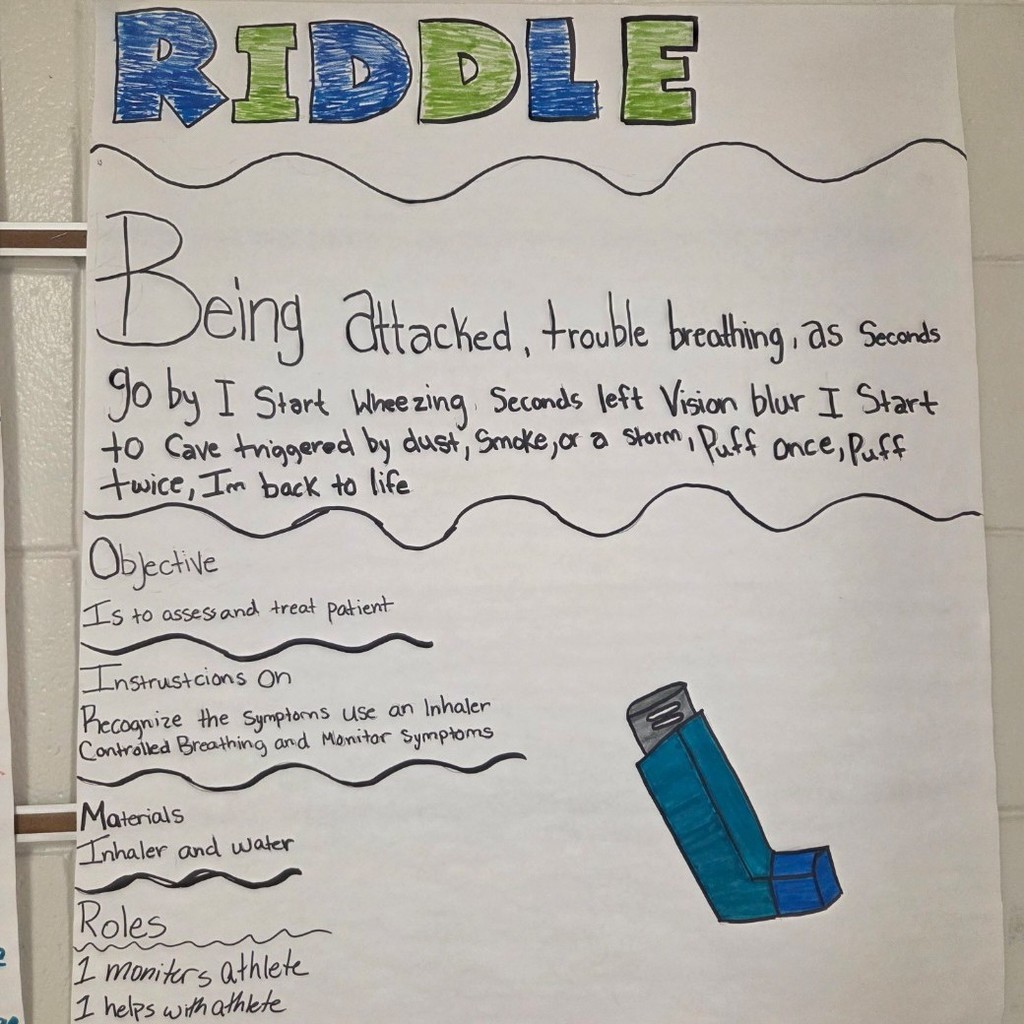 RIDDLE
Being attacked, trouble breathing, as Seconds
go by I Start Wheezing. Seconds left Vision blur I Start
to Cave triggered by dust, Smoke, or a Storm, Puff once, Puff
twice, Im back to life
Objective
Is to assess and treat patient
Instrustcions on
Recognize the Symptoms use an Inhaler
Controlled Breathing and Monitor Symptoms
Materials
Inhaler and water
Roles
1 moniters athlete
1 helps with athlete